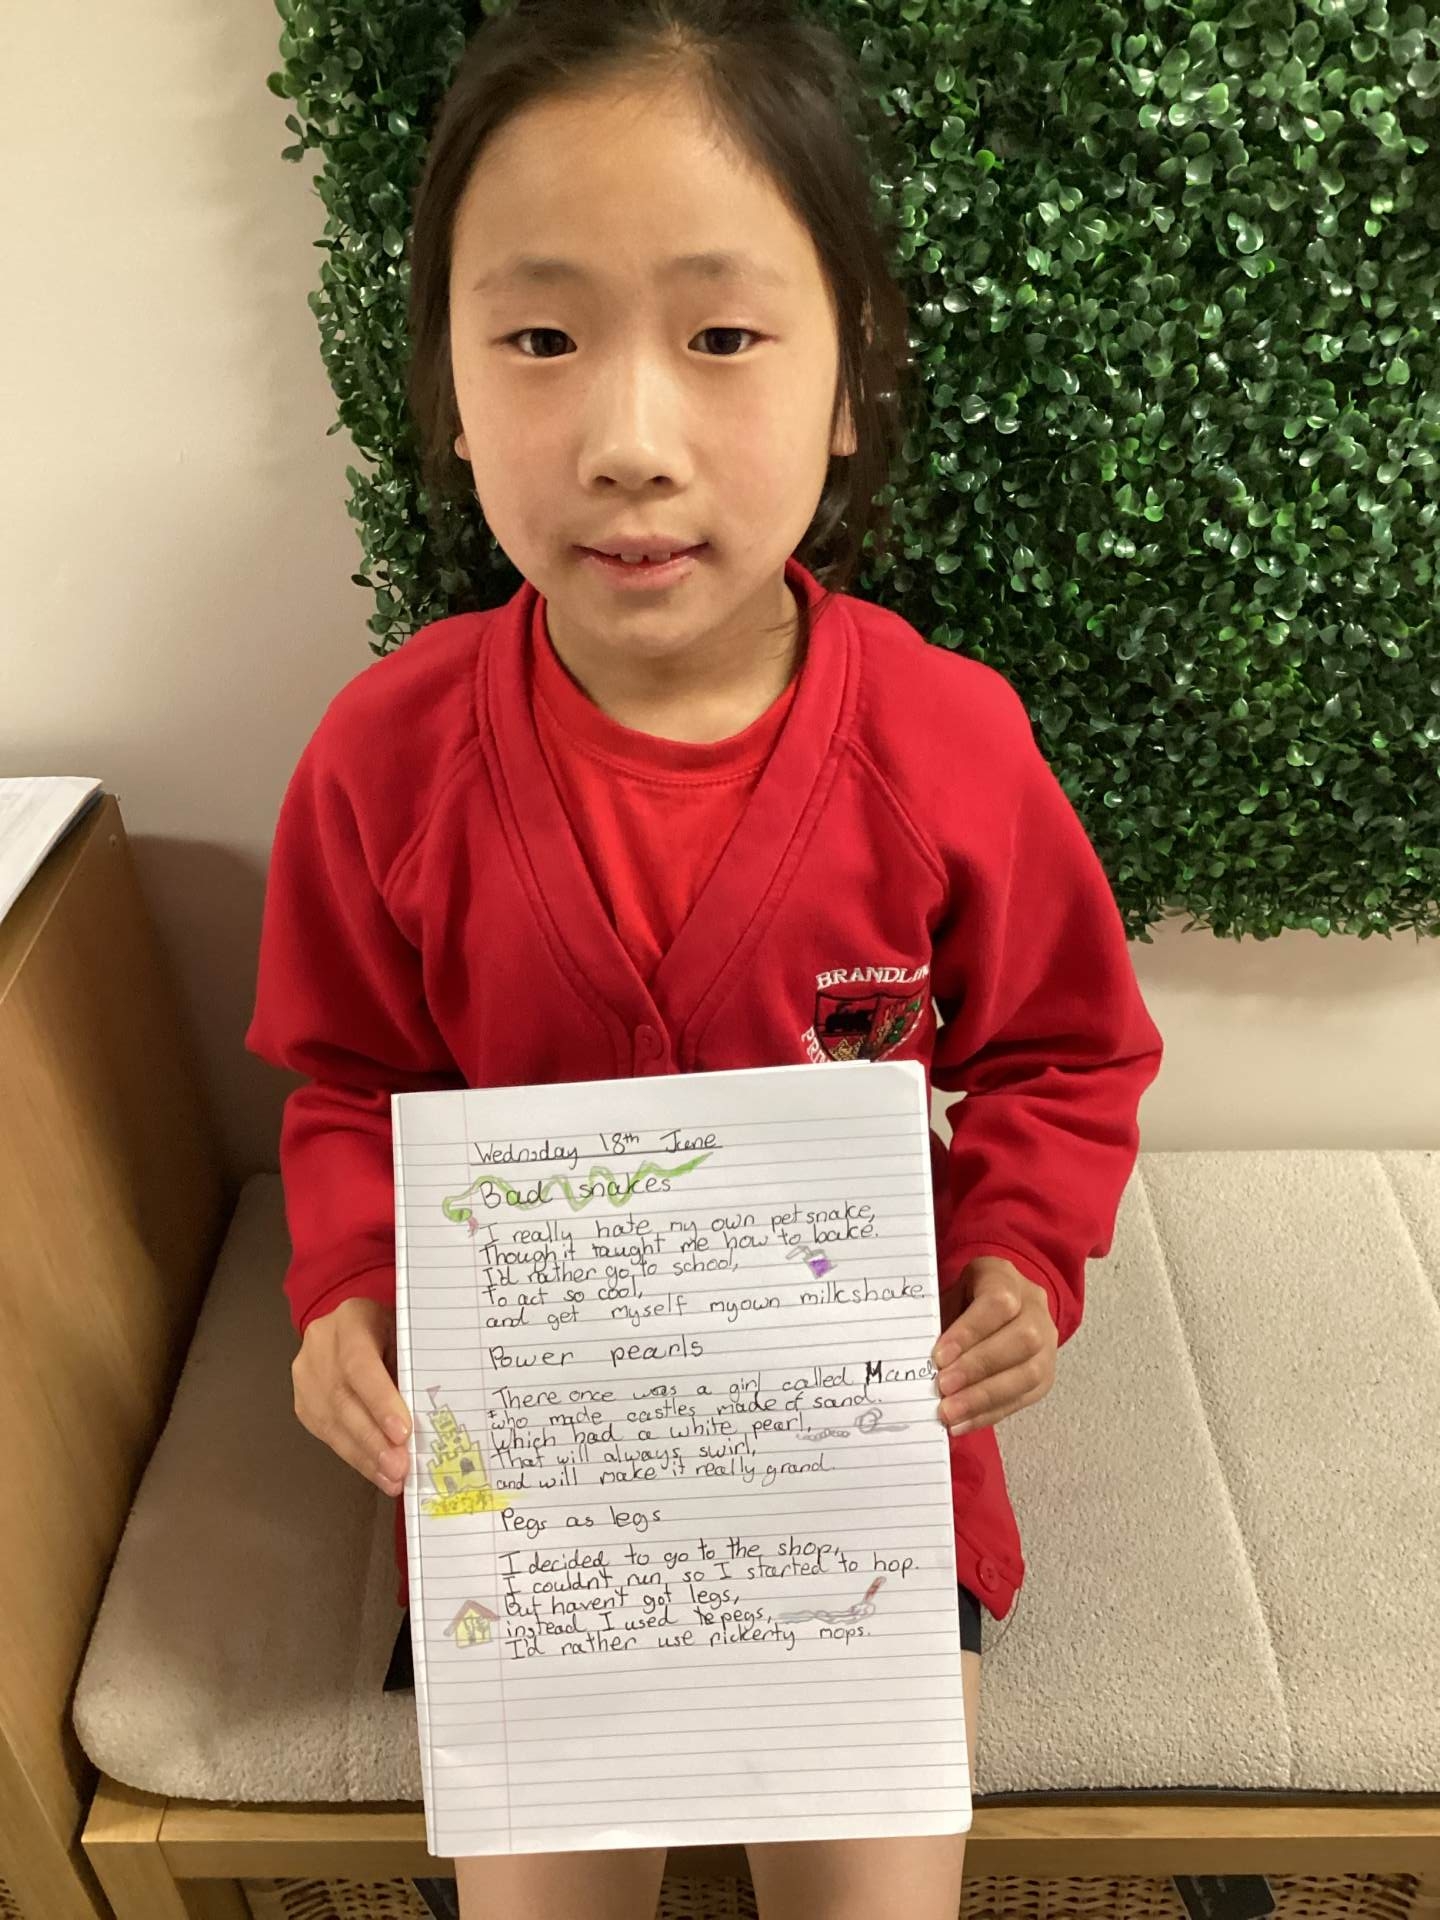 BRANDLIN
PRI
Wednsday 18th June
Bad snakes
I really hate my own pet snake,
Though it taught me how to bake.
I'd rather go to school,
To act so cool,
and get myself my own milkshake.
Power pearls
There once was a girl called Mand,
who made castles made of sand.
Which had a white pearl,
That will always swirl,
and will make it really grand.
Pegs as legs
I decided to go to the shop,
I couldn't run, so I started to hop.
But haven't got legs,
instead I used pegs,
I'd rather use rickerty mops.